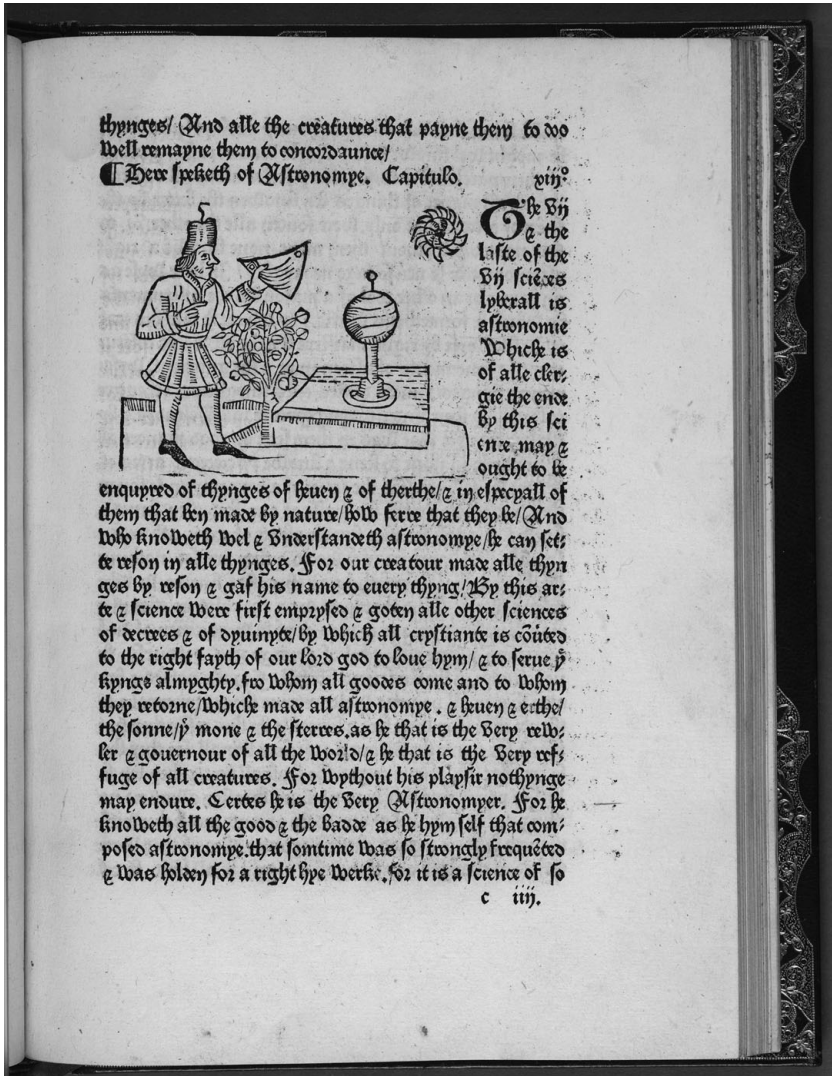 thynges/ And alle the creatures that payne them to doo
well remayne them to concordaunce/
¶Here speketh of Astronomye. Capitulo. xiijº
The Vij
& the
laste of the
Vij sciēces
lyberall is
astronomie
Whiche is
of alle cler⸗
gie the ende
By this sci
ence may &
ought to be
enquyred of thynges of heuen & of therthe/& in especyall of
them that ben made by nature/how ferre that they be/And
who knoweth wel & Vnderstandeth astronomye/he can set⸗
te reson in alle thynges. For our creatour made alle thyn
ges by reson & gaf his name to euery thyng/By this ar⸗
te & science were first emprysed & goten alle other sciences
of decrees & of dyuinyte/by which all crystiante is cōuted
to the right fayth of our lord god to loue hym/& to serue yͤ
kyngs almyghty.fro whom all goodes come and to whom
they retorne/whiche made all astronomye . & heuen & erthe/
the sonne/yͤ mone & the sterres.as he that is the Very rew⸗
ler & gouernour of all the world/& he that is the Very ref⸗
fuge of all creatures. For wythout his playsir nothynge
may endure. Certes he is the Very Astronomyer. For he
knoweth all the good & the badde as he hym self that com⸗
posed astronomye.that somtime was so strongly frequēted
& was holden for a right hye werke.for it is a science of so
c iiij.